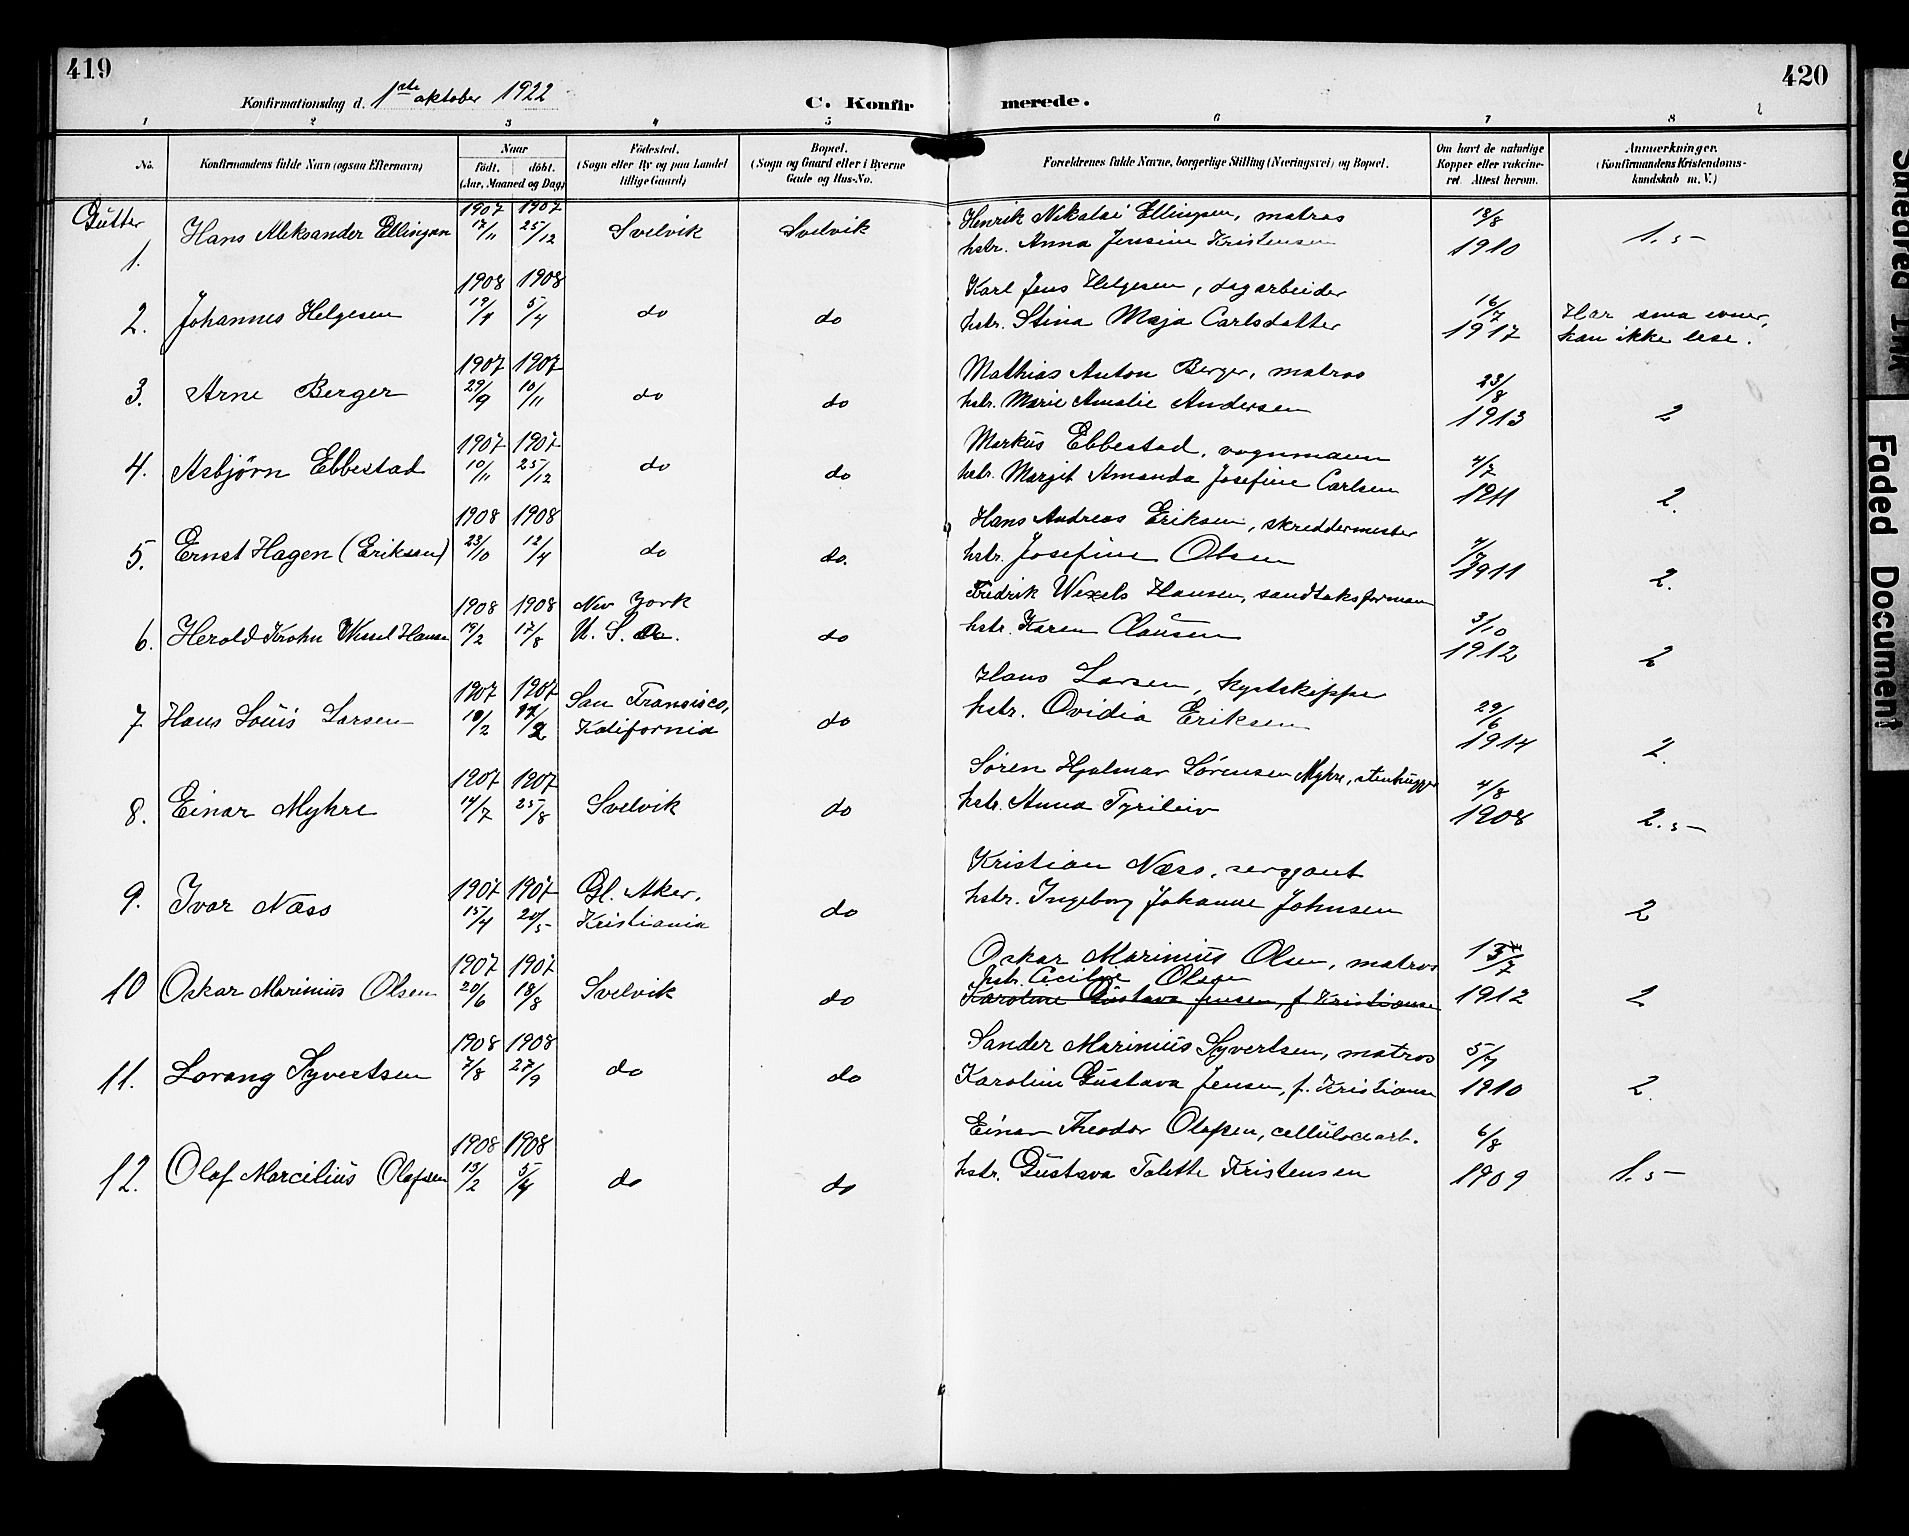 419
420
Konfirmationsdag d. 1ste oktober 1922
C. Konfirmerede.
1 2 3 4 5 6 7 8
No.
Konfirmandens fulde Navn (ogsaa Efternavn)
Naar
født. døbt.
(Aar, Maaned og Dag)
Fødested.
(Sogn eller By og paa Landet
tillige Gaard)
Bopæl.
(Sogn og Gaard eller i Byerne
Gade og Hus-No.
Forældrenes fulde Navne, borgerlige Stilling (Næringsvei) og Bopæl.
Om havt de naturlige
Kopper eller vakcine-
ret Attest herom.
Anmærkninger.
(Konfirmandens Kristendoms-
kundskab m. V.)
Gutter
1. Hans Aleksander Ellingsen 1907 17/11 1907 25/12 Svelvik Svelvik
Henrik Nikolai Ellingsen, matros
hstr. Anna Jensine Kristensen
18/8 1910 1.5-
2. Johannes Helgesen 1908 19/1 1908 5/4 do do
Karl Jens Helgesen, dagarbeider
hstr. Stina Maja Carlsdatter
16/7 1917 Har sma evner,
kan ikke lese.
3. Arne Berger 1907 29/9 1907 10/11 do do
Mathias Anton Berger, matros
hstr. Marie Amalie Andersen
23/8 1913 2
4. Asbjørn Ebbestad 1907 10/11 1907 25/12 do do
Markus Ebbestad, vognmann
hstr. Margit Amanda Josefine Carlsen
4/7 1911 2.
5. Ernst Hagen (Eriksen) 1908 23/10 1908 12/4 do do.
Hans Andreas Eriksen, skreddermester
hstr. Josefine Olsen
4/7 1911 2.
6. Herold Krohn Wessel Hansen 1908 19/2 1908 17/8 New York
U. S. A. do
Fredrik Wexels Hansen, sandtaksformann
hstr. Karen Clausen
3/10 1912 2
7 Hans Louis Larsen 1907 10/2 1907 17/2 San Fransisco,
Kalifornia do
Hans Larsen, kystskipper
hstr. Ovidia Eriksen
29/6 1914 2.
8. Einar Myhre 1907 14/7 1907 25/8 Svelvik do
Søren Hjalmar Sørensen Myhre, stenhugger
hstr. Anna Tyrileiv
4/8 1908 2.5-
9. Ivar Næss 1907 15/4 1907 20/5 Gl. Aker,
Kristiania do
Kristian Næss, sergant
hstr. Ingeborg Johanne Johnsen
2
10 Oskar Marinius Olsen 1907 20/6 1907 18/8 Svelvik do
Oskar Marinius Olsen, matros
hstr. Cecilie Olsen
Karoline Gustava Jensen, f. Kristiansen
13/7 1912 2
11. Lorang Syvertsen 1908 7/8 1908 27/9 do do
Sander Marinius Syvertsen, matros
Karoline Gustava Jensen, f. Kristiansen
5/7 1910 2
12. Olaf Marcilius Olafsen 1908 13/2 1908 5/4 do do
Einar Theodor Olafsen, cellulosearb.
hstr. Gustava Talette Kristensen
6/8 1909 1.5-
Smeared Ink
Faded Document